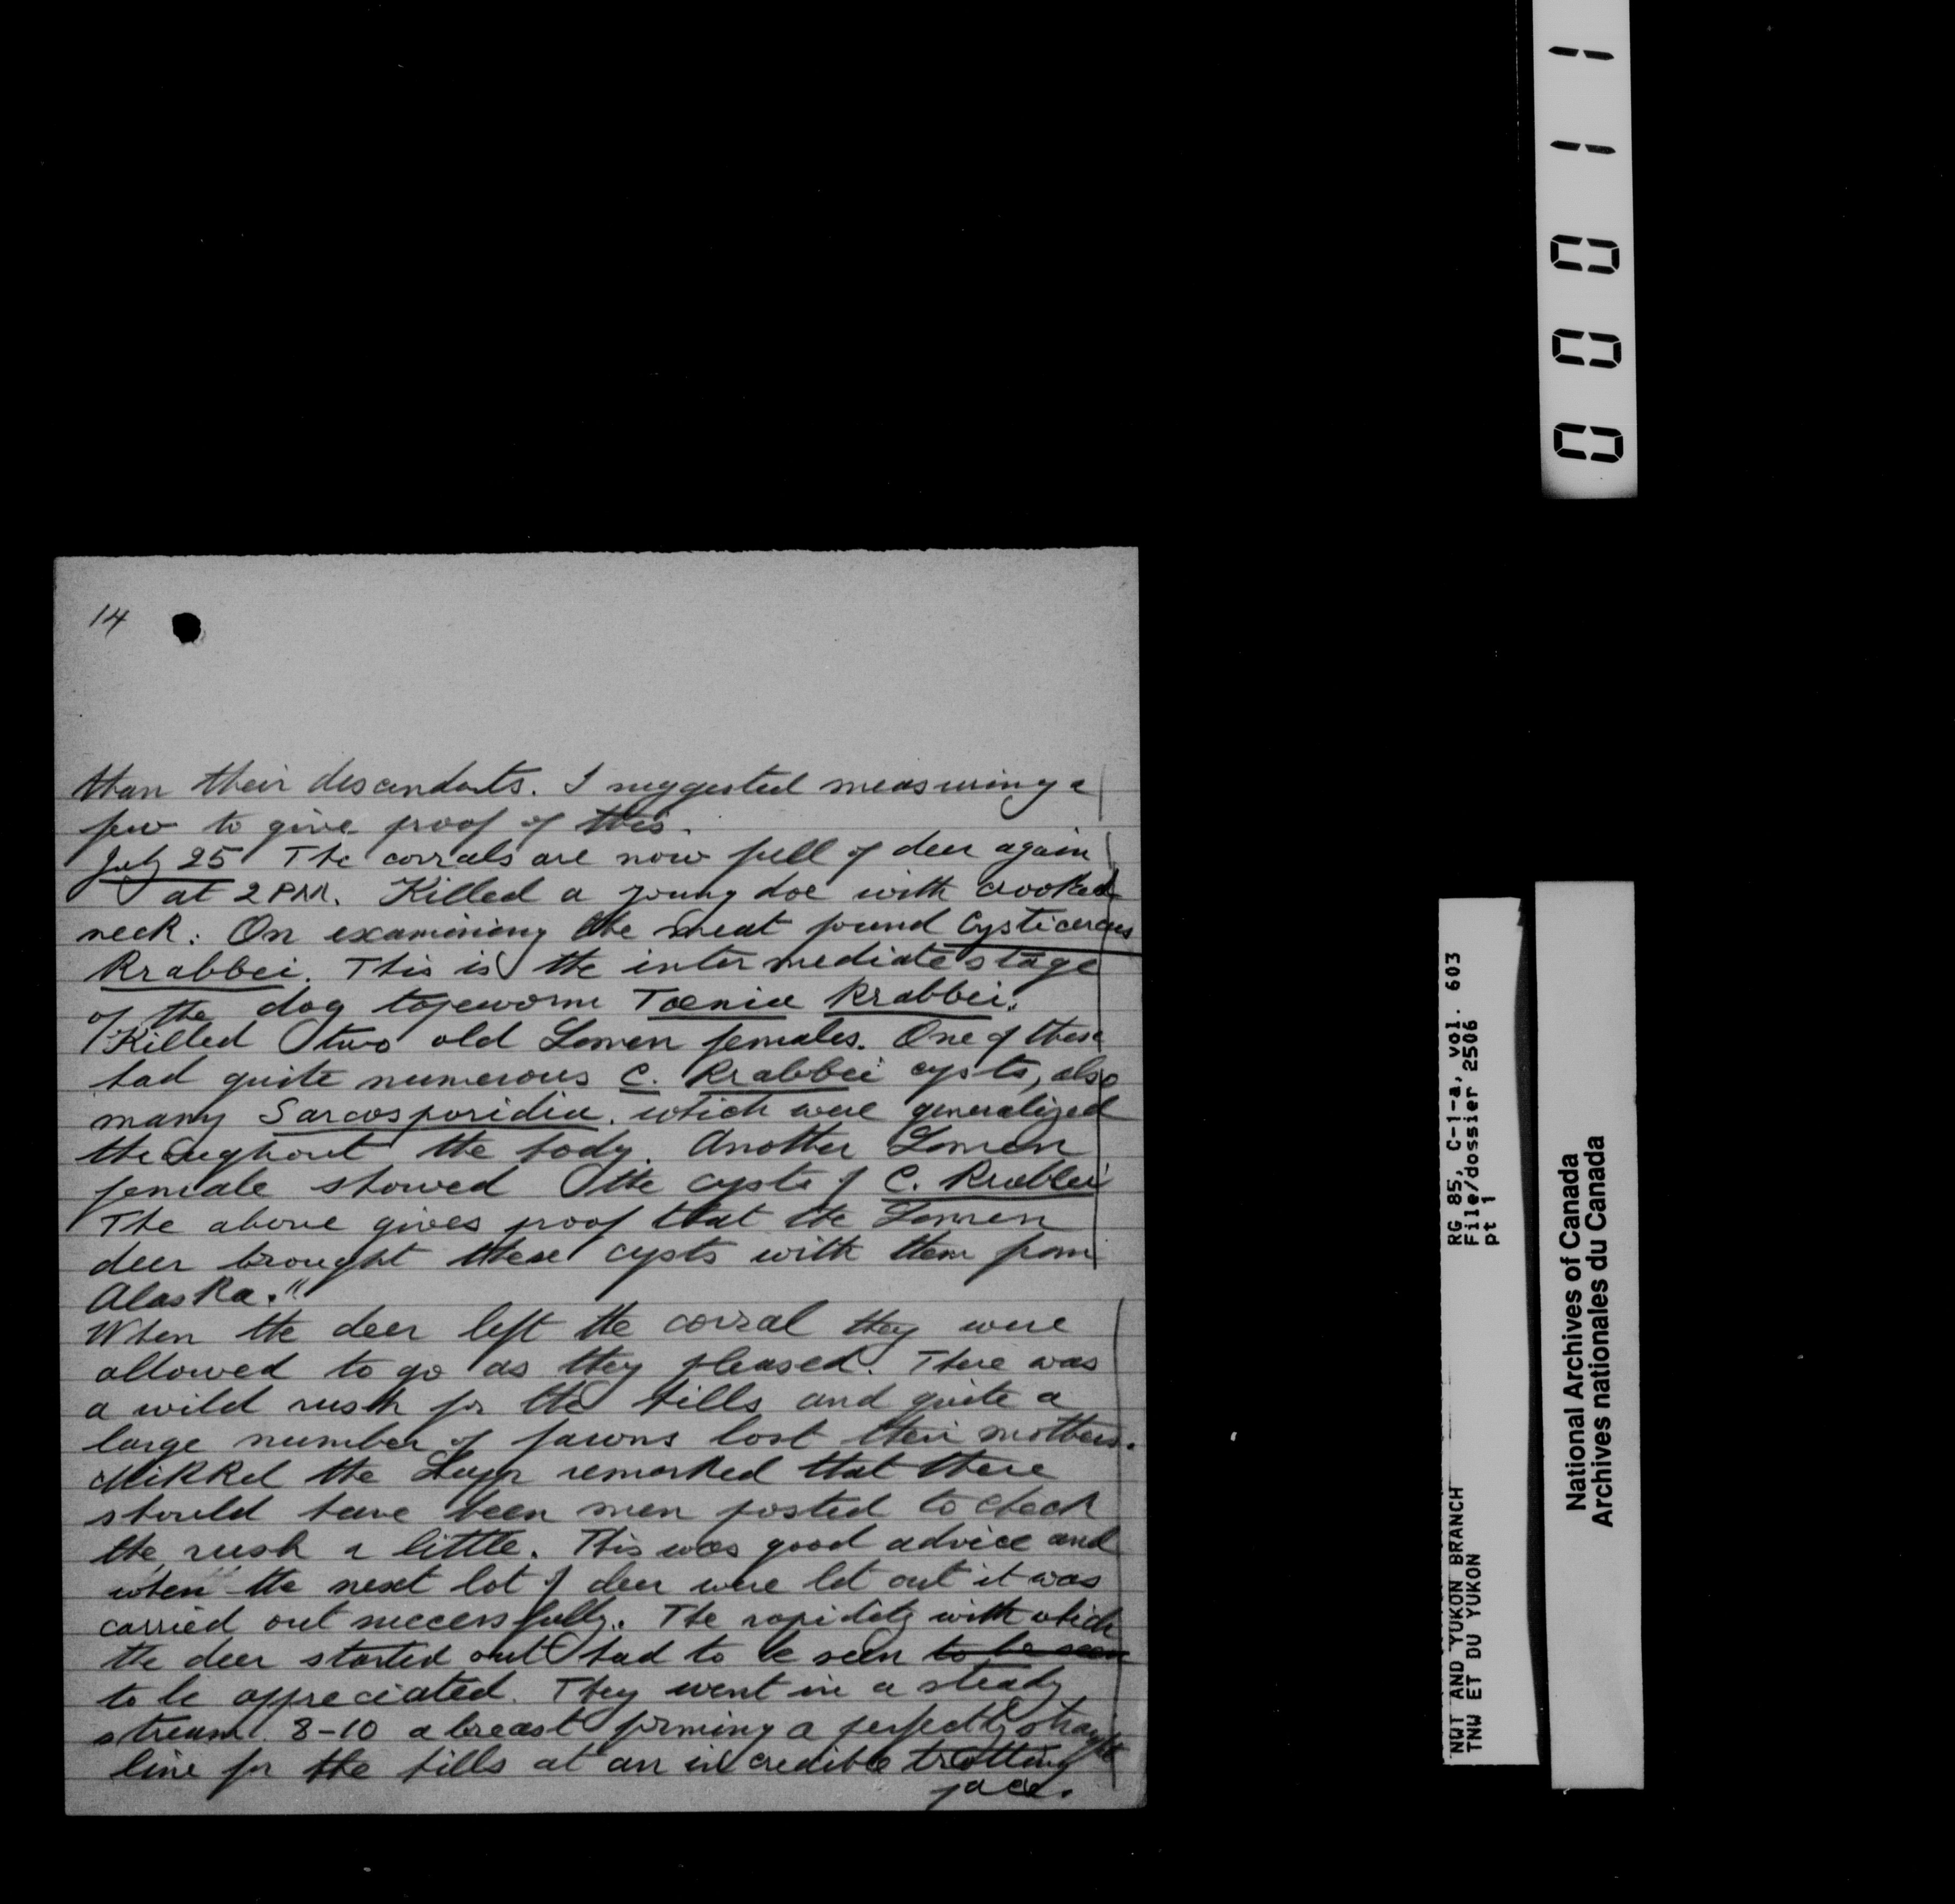 14
than their descendants. I suggested measuring a
few to give proof of this.
July 25 The corrals are now full of deer again
at 2 PM. Killed a young doe with crooked
neck. On examining the meat found Cysticercus
Krabbei. This is the intermediate stage
of the dog tapeworm Taenia Krabbei.
Killed two old Lomen females. One of these
had quite numerous C. Krabbei cysts, also
many Sarcosporidia. which were generalized
throughout the body. Another Lomen
female showed the cysts of C. Krabbei
The above gives proof that the Lomen
deer brought these cysts with them from
Alaska."
When the deer left the corral they were
allowed to go as they pleased. There was
a wild rush for the hills and quite a
large number of fawns lost their mothers.
Mikkel the Lapp remarked that there
should have been men posted to check
the rush a little. This was good advice and
when the next lot of deer were let out it was
carried out successfully. The rapidity with which
the deer started out had to be seen to be seen
to be appreciated. They went in a steady
stream 8-10 abreast forming a perfectly straight
line for the hills at an incredible trotting
pace.
0 0 0 1 1
RG 85, C-1-a, vol. 603
File/dossier 2506
pt 1
NWT AND YUKON BRANCH
TNW ET DU YUKON
National Archives of Canada
Archives nationales du Canada